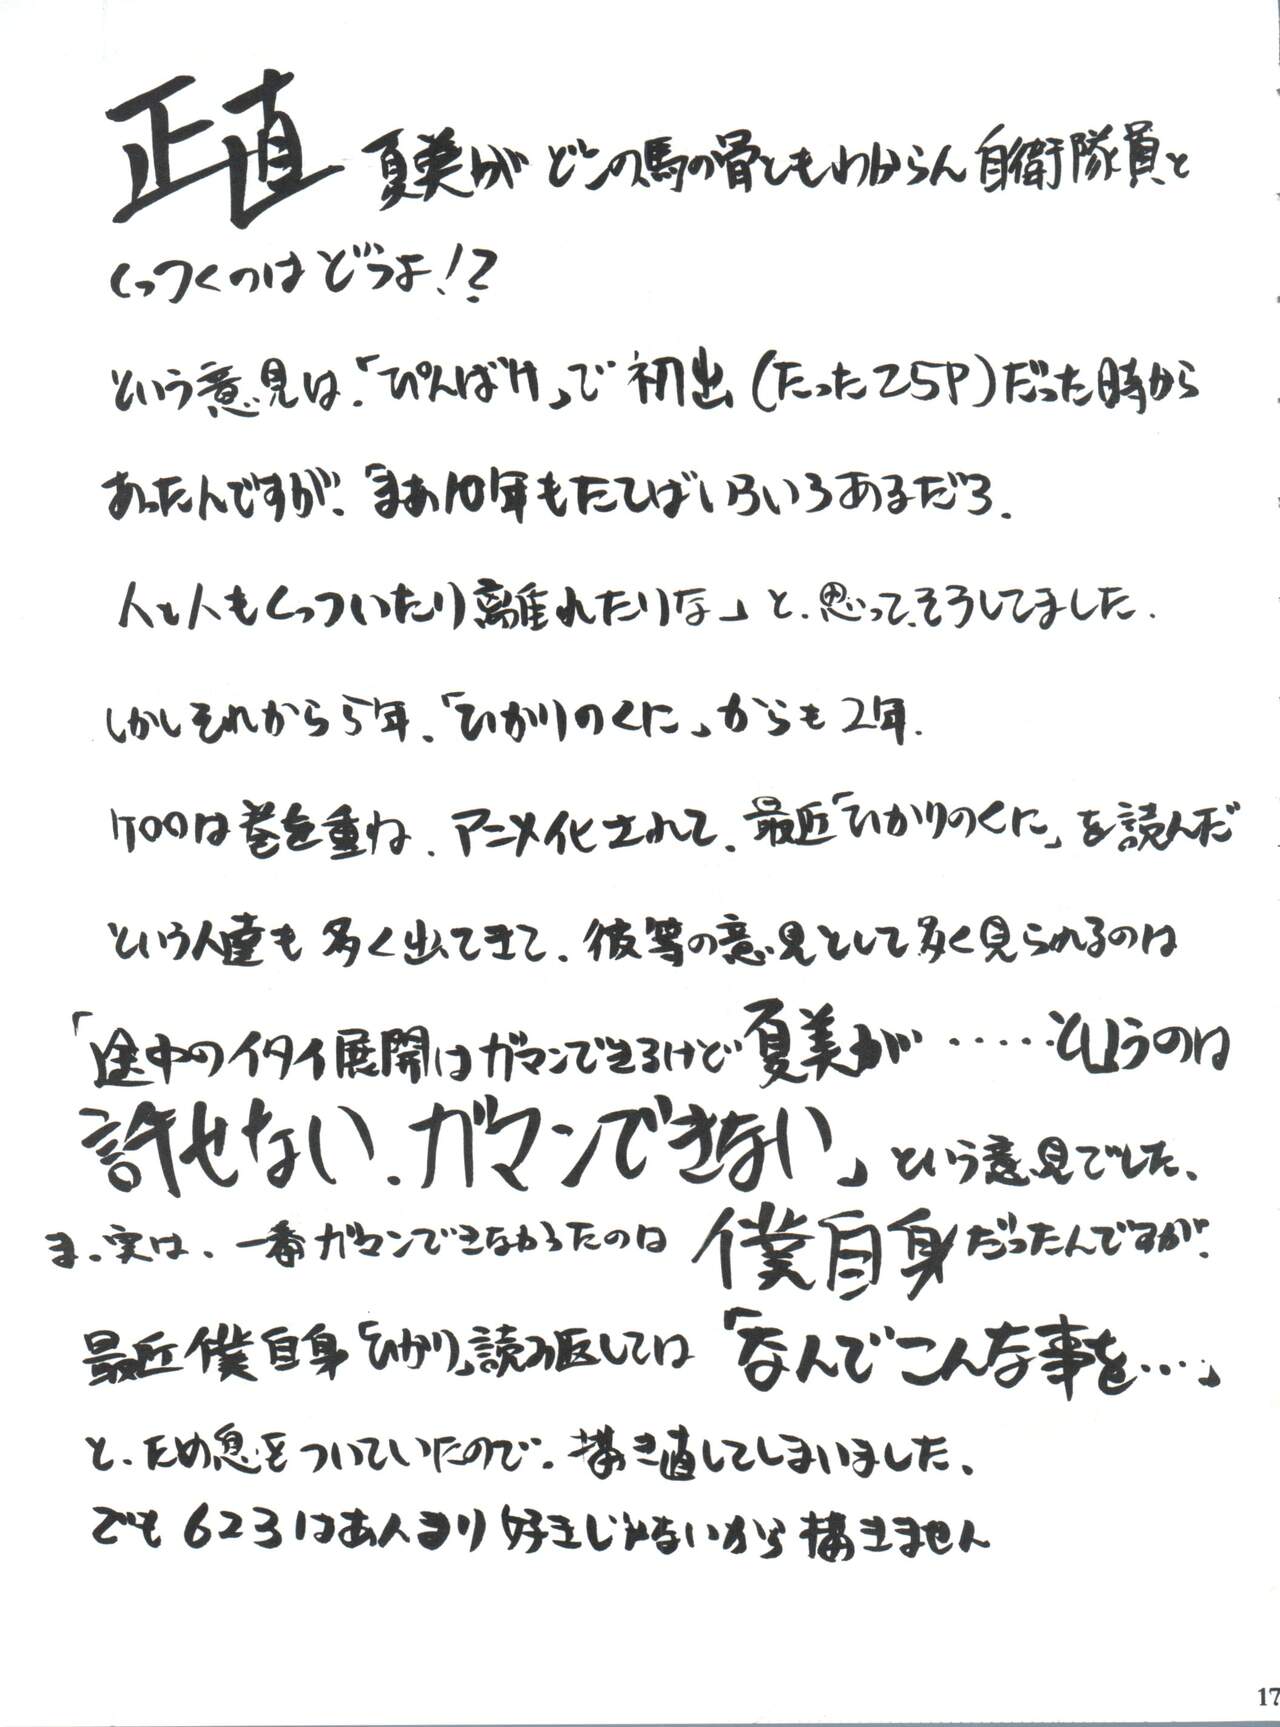 正直 夏美が どこの馬の骨ともわからん 自衛隊員と
くっつくのは どうよ!?
という意見は、「ぴんばけ」で 初出 (たった25P) だった時から
あったんですが、「まぁ10年もたてばいろいろあるだろ.
人と人もくっついたり離れたりな」と、思って、そうしてました.
しかしそれから5年、「ひかりのくに」からも2年.
ケロロは巻を重ね、アニメ化されて、最近「ひかりのくに」を読んだ
という人達も 多く出てきて、彼等の意見として多く見られるのは
「途中のイタイ展開はガマンできるけど 夏美が ・・・・・というのは
許せない、ガマンできない」という意見でした、
ま、実は、一番ガマンできなかったのは 僕自身だったんですが、
最近 僕自身「ひかり」読み返しては 「なんでこんな事を・・・」
と、ため息をついていたので、描き直してしまいました、
でも 623はあんまり好きじゃないから 描きません
17